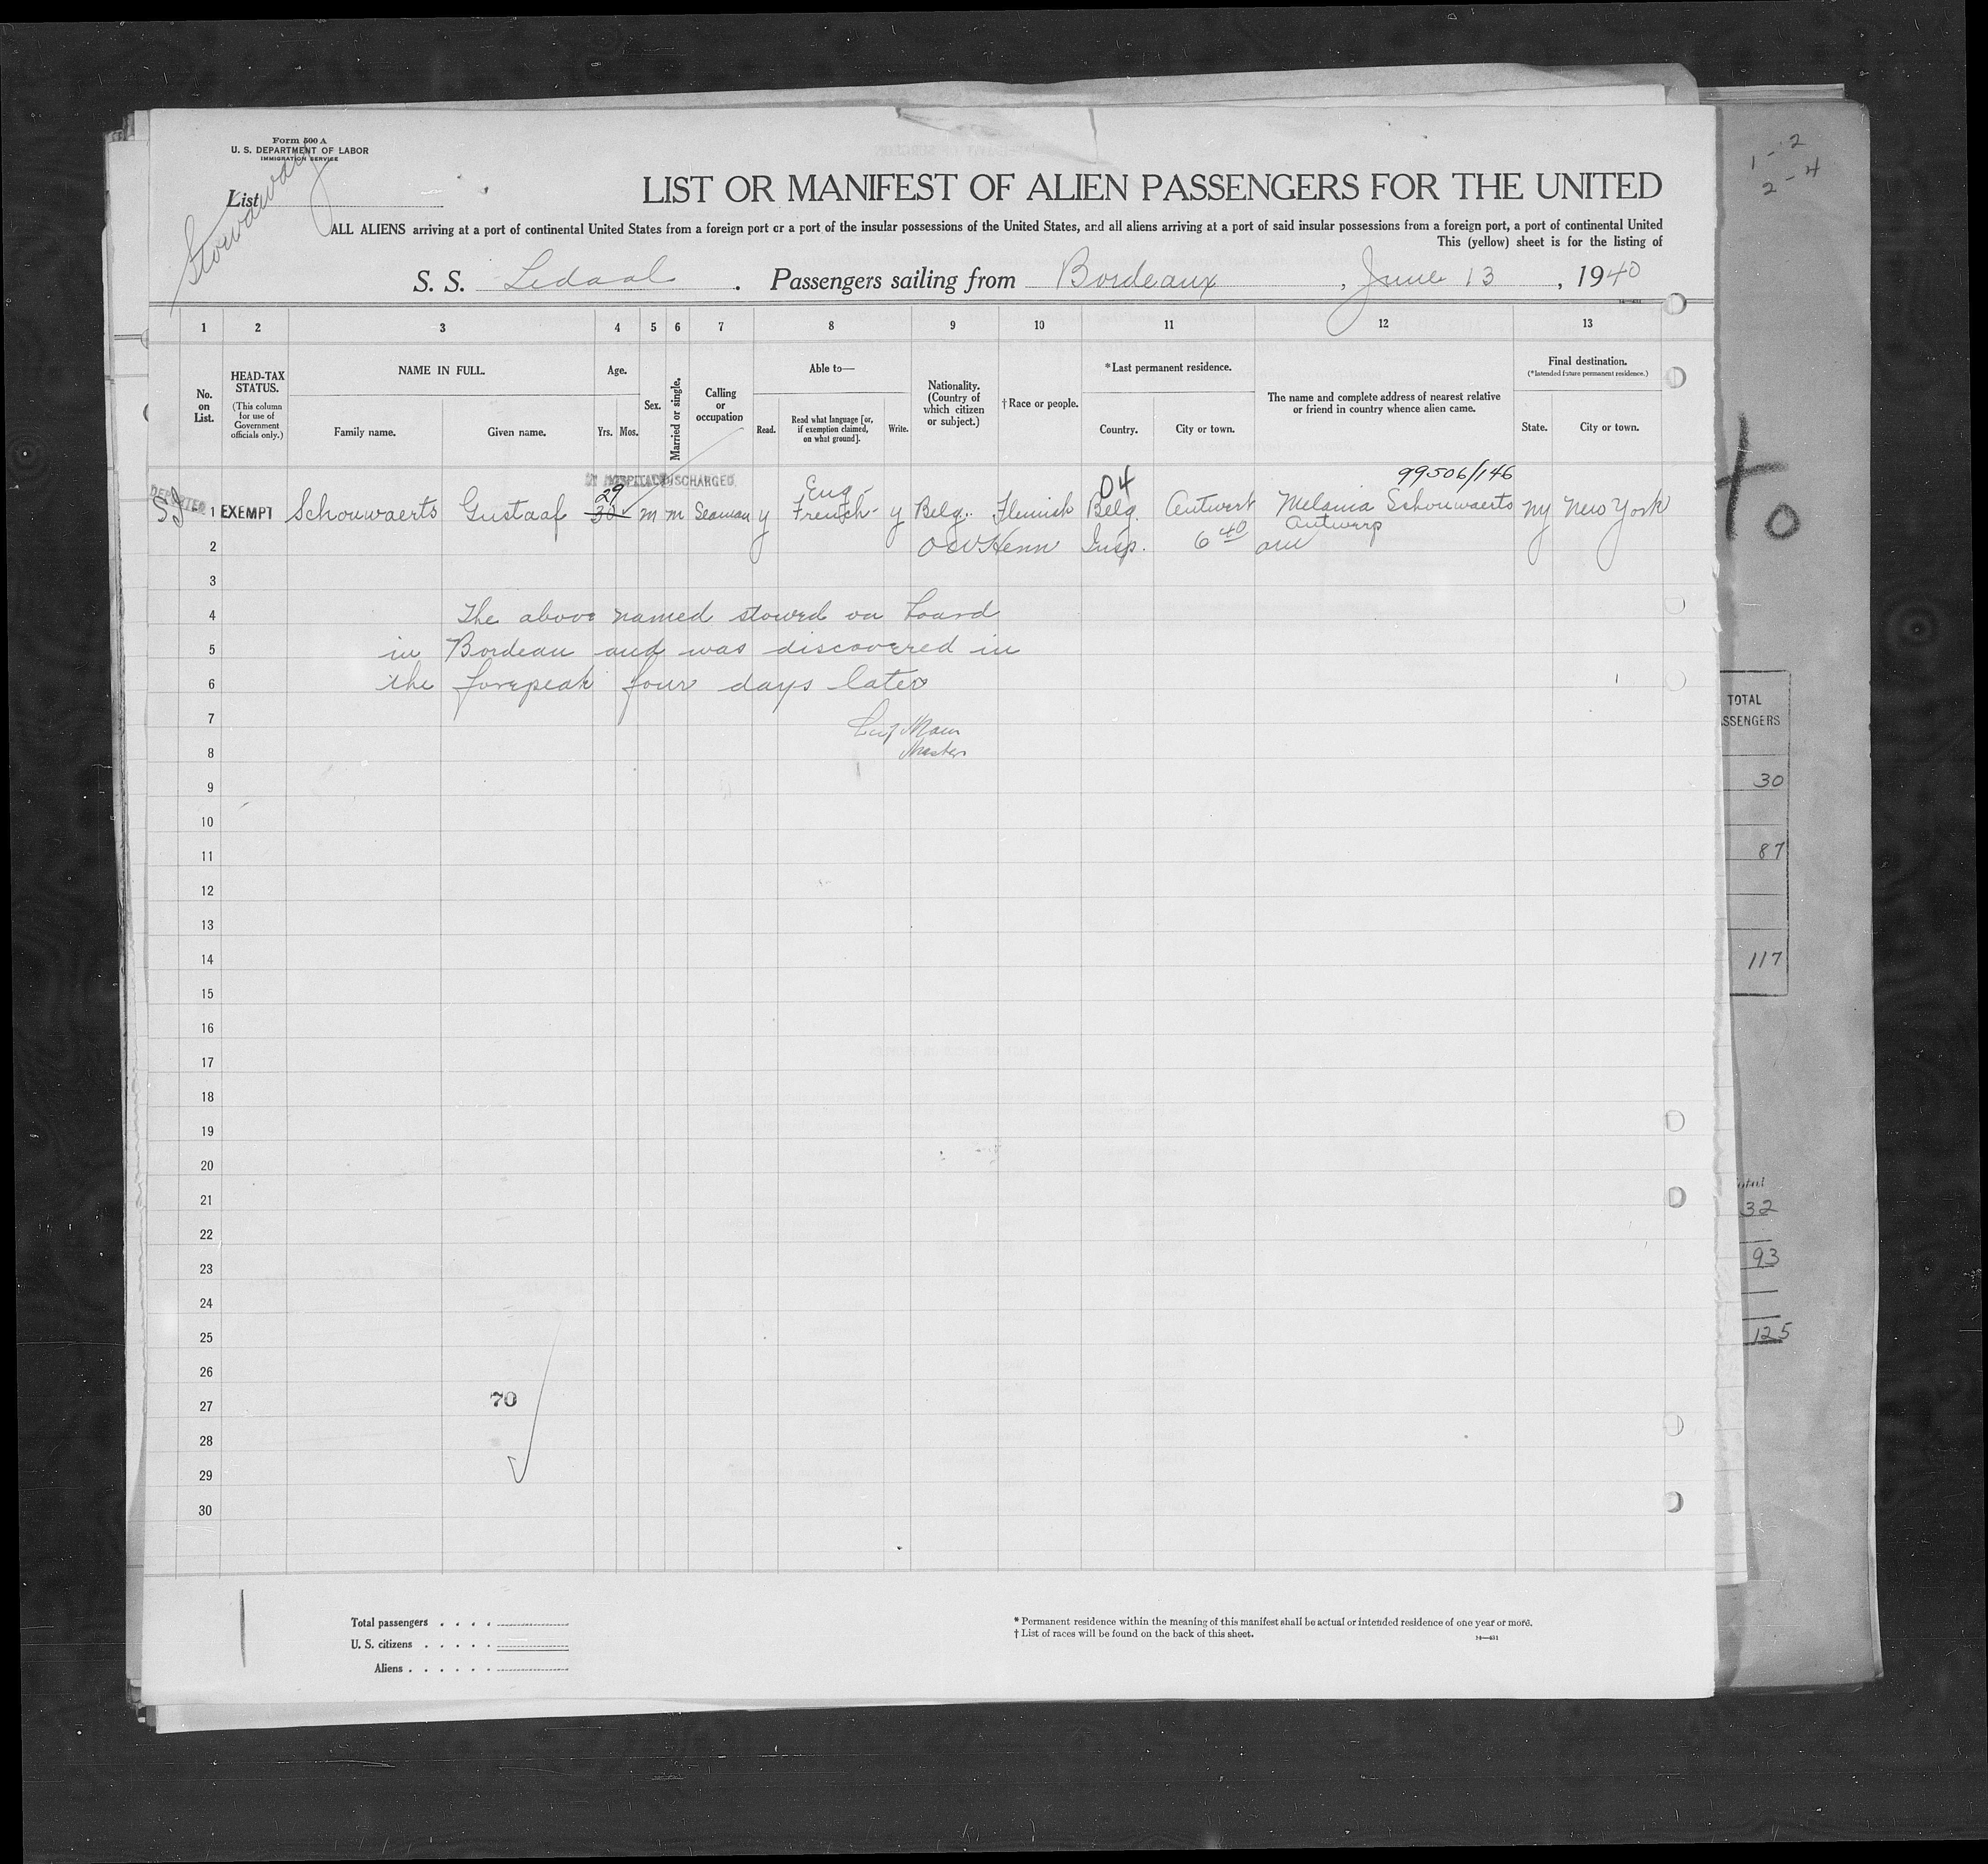 Form 500 A
U. S. DEPARTMENT OF LABOR
IMMIGRATION SERVICE
List
Stowaway
LIST OR MANIFEST OF ALIEN PASSENGERS FOR THE UNITED
ALL ALIENS arriving at a port of continental United States from a foreign port or a port of the insular possessions of the United States, and all aliens arriving at a port of said insular possessions from a foreign port, a port of continental United
This (yellow) sheet is for the listing of
S. S. Ledaal . Passengers sailing from Bordeaux , June 13 , 1940
1 2 3 4 5 6 7 8 9 10 11 12 13
No. on List.
HEAD-TAX STATUS.
(This column for use of Government officials only.)
NAME IN FULL.
Family name. Given name.
Age.
Yrs. Mos.
Sex.
Married or single.
Calling or occupation
Able to—
Read. Read what language [or, if exemption claimed, on what ground]. Write.
Nationality. (Country of which citizen or subject.)
†Race or people.
*Last permanent residence.
Country. City or town.
The name and complete address of nearest relative or friend in country whence alien came.
Final destination.
(*Intended future permanent residence.)
State. City or town.
IN HOSPITAL DISCHARGED
99506/146
29 Eng- 04
DEPORTED
SJ 1 EXEMPT Schouwaerts Gustaaf 30 m m Seaman y French- y Belg. Flemish Belg. Antwert Melania Schouwaerts ny New York
Antwerp
2 Insp. 6 40 am
3
4 The above named stowed on board
5 in Bordeau and was discovered in
6 the forepeak four days later
7
8 Master
9
10
11
12
13
14
15
16
17
18
19
20
21
22
23
24
25
26
27
28
29
30
70
Total passengers . . . .
U. S. citizens . . . . .
Aliens . . . . . .
* Permanent residence within the meaning of this manifest shall be actual or intended residence of one year or more.
† List of races will be found on the back of this sheet.
14—431
1 - 2
2 - 4
to
TOTAL
SSENGERS
30
87
117
32
93
125